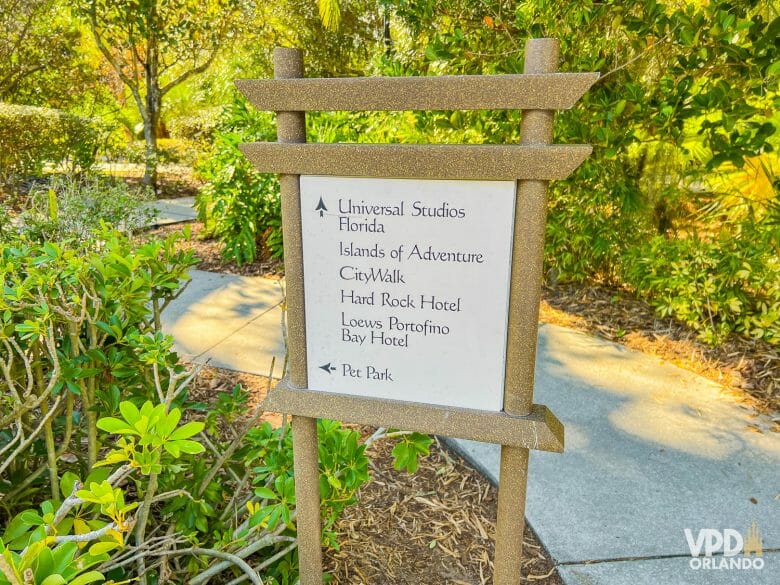 Universal Studios
Florida
Islands of Adventure
CityWalk
Hard Rock Hotel
Loews Portofino
Bay Hotel
Pet Park
VPD
ORLANDO